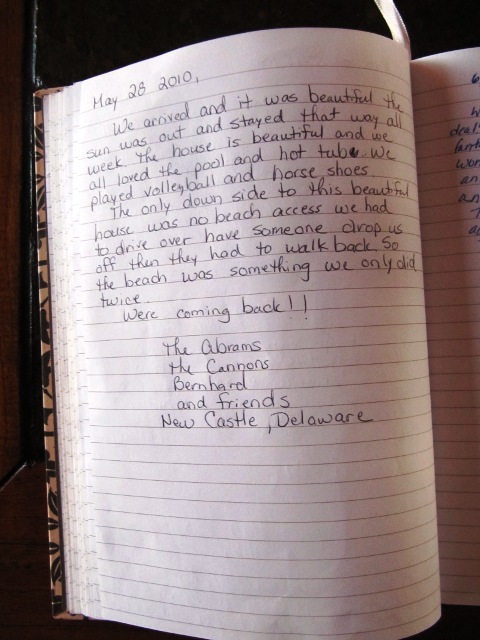 May 28 2010,
We arrived and it was beautiful the
sun was out and stayed that way all
week the house is beautiful and we
all loved the pool and hot tub. We
played volleyball and horse shoes
The only down side to this beautiful
house was no beach access we had
to drive over have someone drop us
off then they had to walk back. So
the beach was something we only did
twice.
Were coming back!!
The Abrams
the Cannons
Bernhard
and friends
New Castle, Delaware